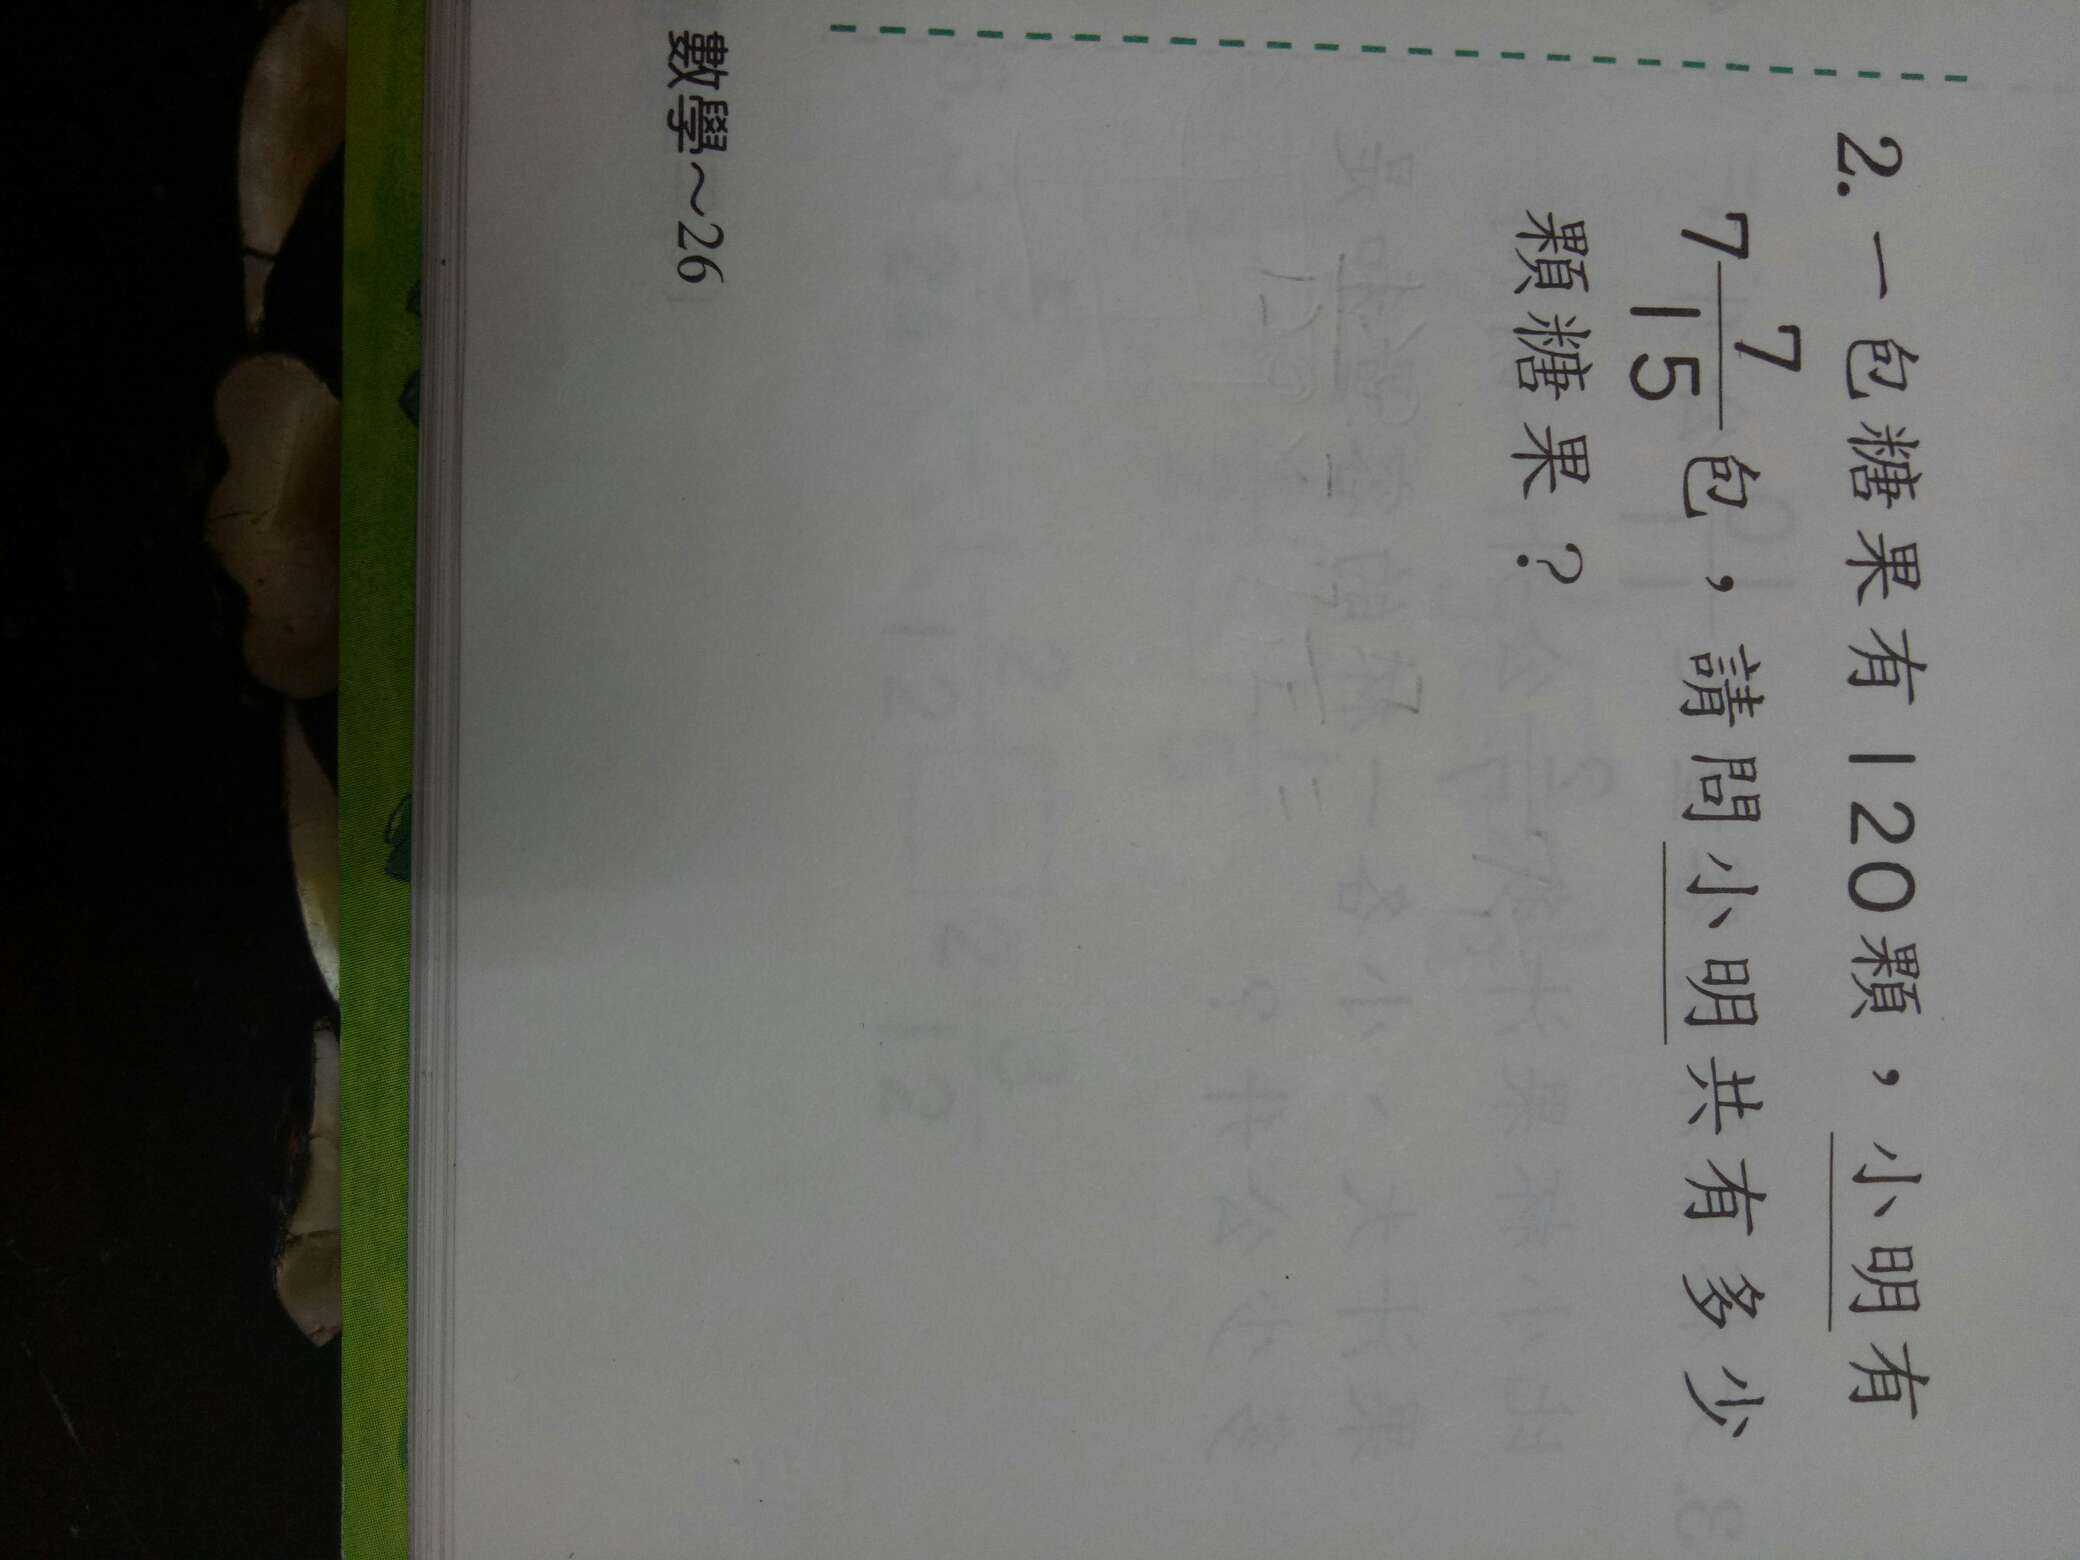 2. 一包糖果有120顆，小明有
7 7/15 包，請問小明共有多少
顆糖果？
數學～26